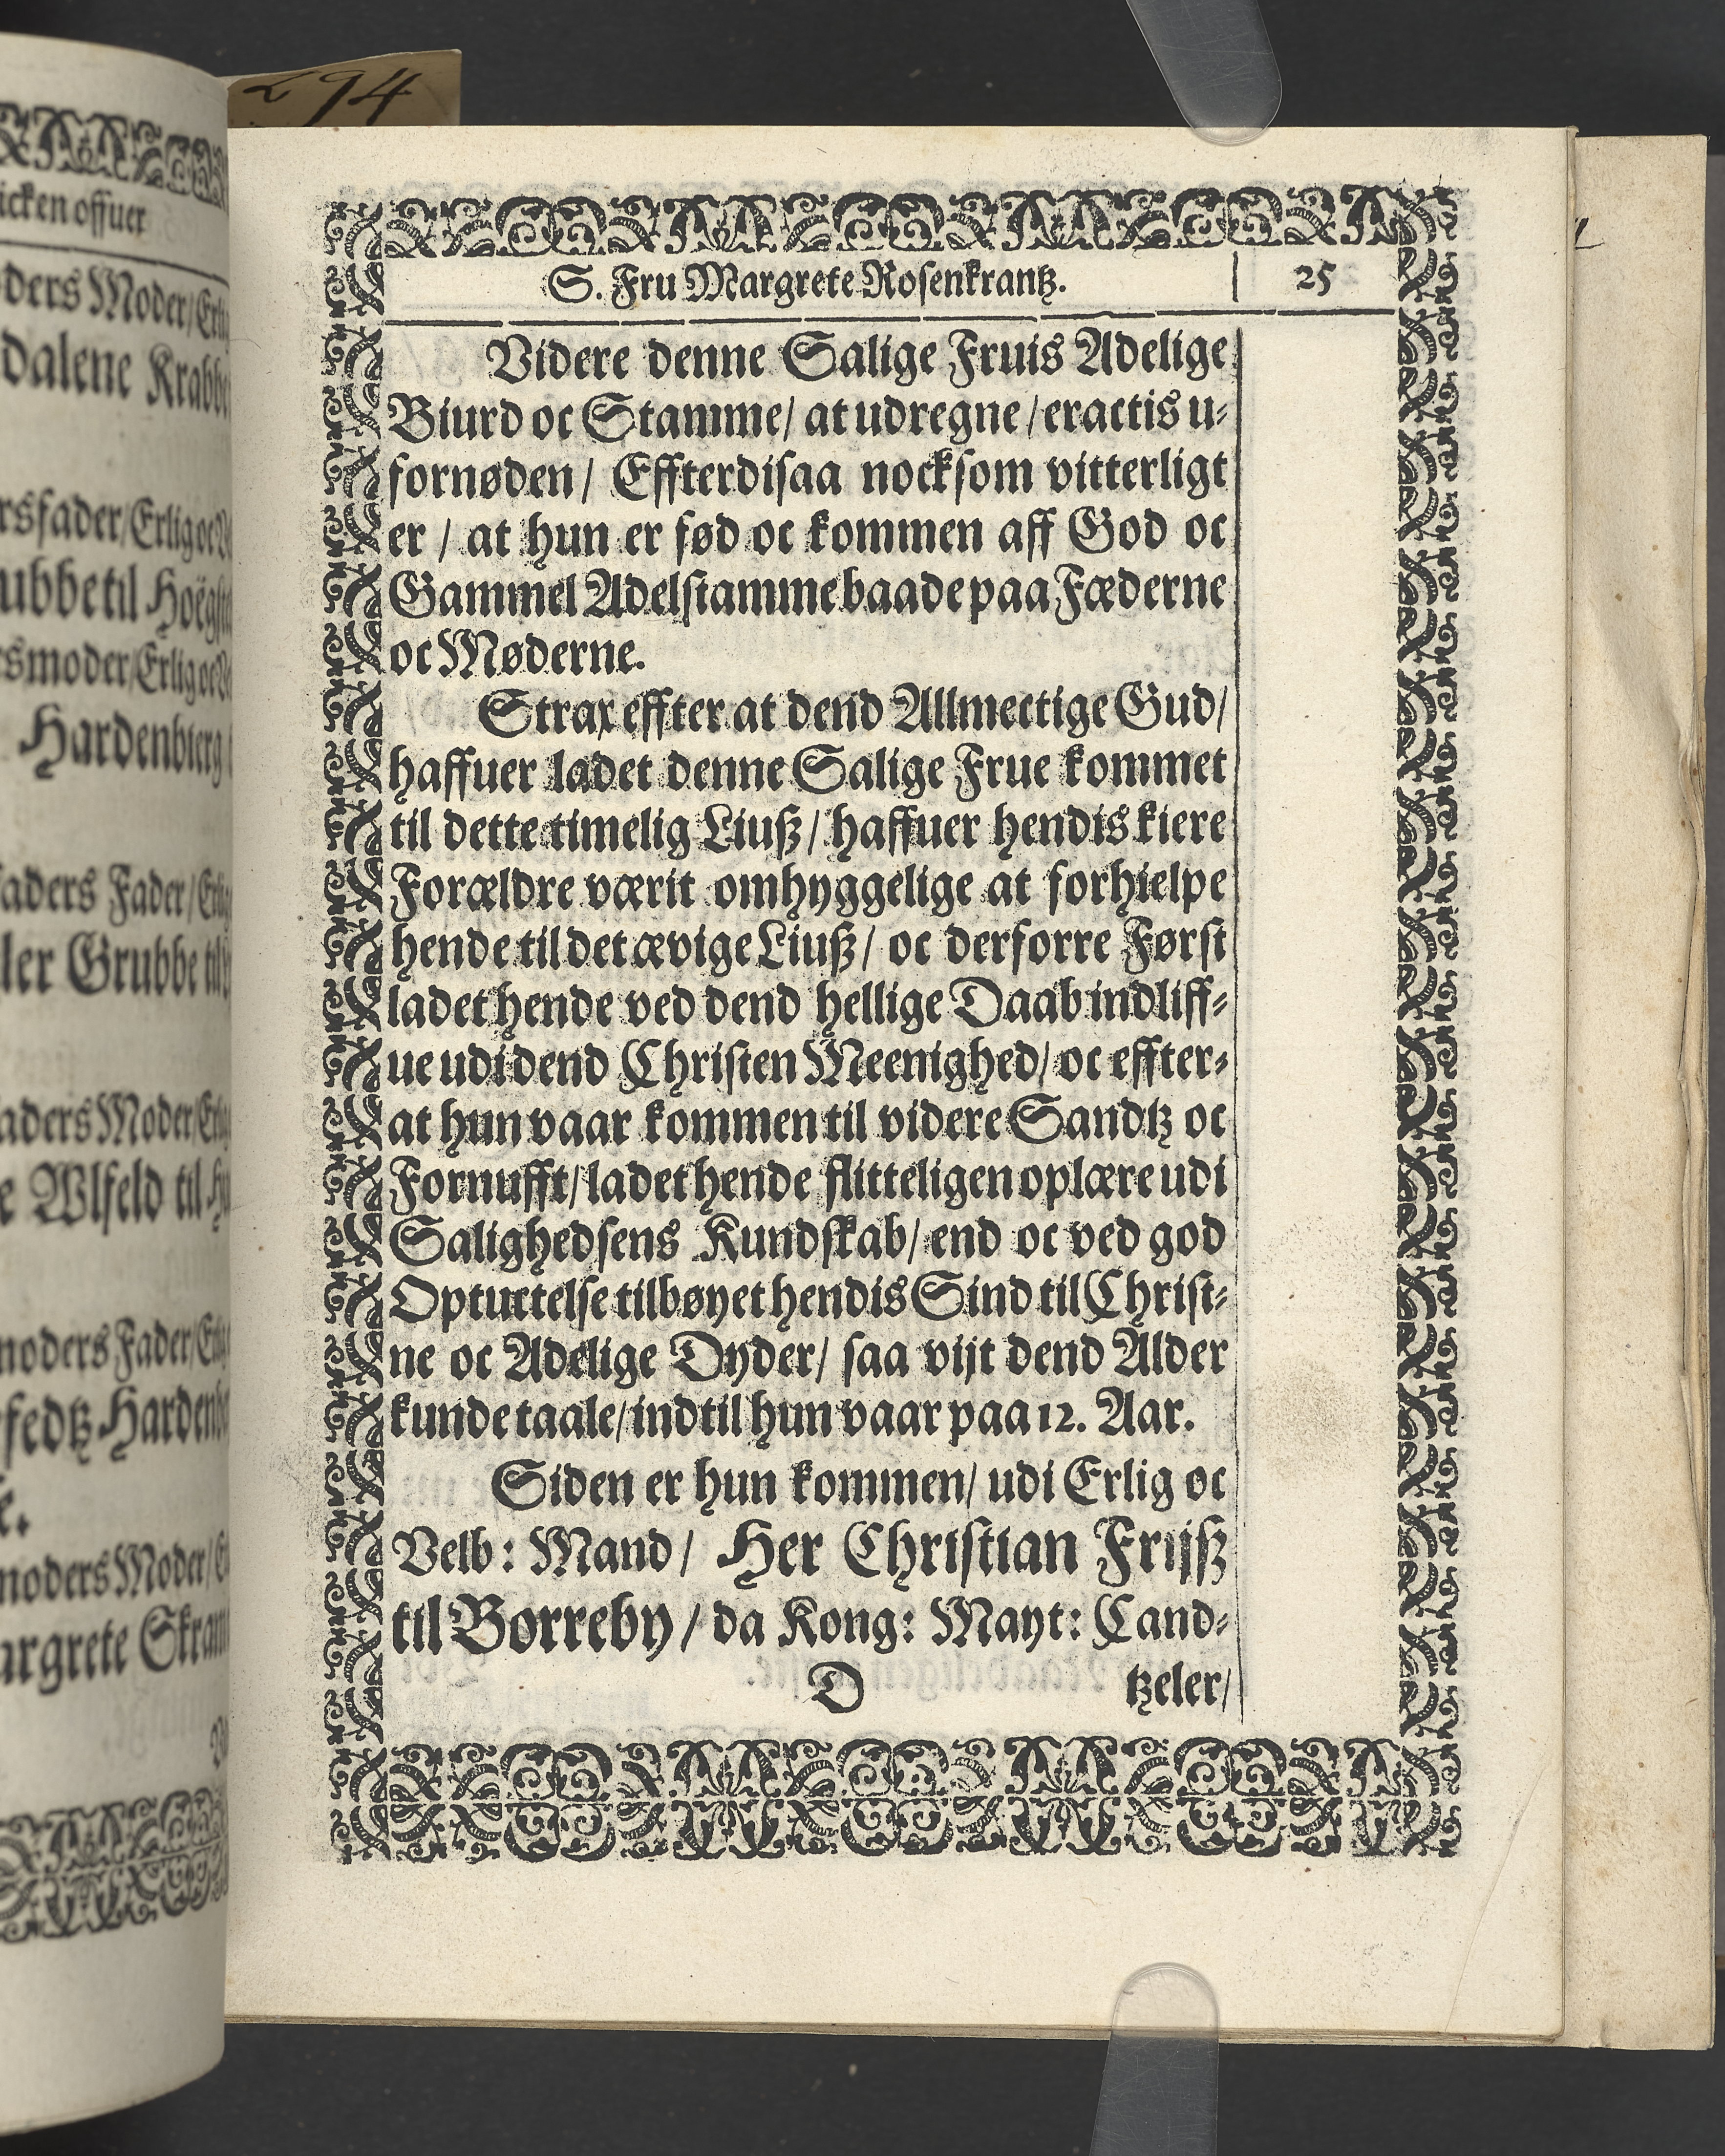 294
icken offuer
ders Moder/
dalene Krabbe
rsfader/Erlig oc
ubbe til
smoder/Erlig oc
Hardenbierg
faders Fader/
ler Grubbe til
aders Moder/
e Wlfeld til
moders Fader/
fedtz
moders Moder/
argrete
S. Fru Margrete Rosenkrantz.
25
Videre denne Salige Fruis Adelige
Biurd oc Stamme/ at udregne/ eractis u⸗
fornøden/ Effterdisaa nocksom vitterligt
er / at hun er fød oc kommen aff God oc
Gammel Adelstamme baade paa Fæderne
oc Møderne.
Strax effter at dend Allmectige Gud/
haffuer ladet denne Salige Frue kommet
til dette timelig Liuß/ haffuer hendis kiere
Forældre værit omhyggelige at forhielpe
hende til det ævige Liuß/ oc derforre Først
ladet hende ved dend hellige Daab indliff⸗
ue udi dend Christen Meenighed/ oc effter⸗
at hun vaar kommen til videre Sandtz oc
Fornufft/ ladet hende flitteligen oplære udi
Salighedsens Kundskab/ end oc ved god
Optuctelse tilbøyet hendis Sind til Christ⸗
ne oc Adelige Dyder/ saa vijt dend Alder
kunde taale/ indtil hun vaar paa 12. Aar.
Siden er hun kommen/ udi Erlig oc
Velb: Mand/ Her Christian Frijß
til Borreby/ da Kong: Mayt: Cand⸗
D
tzeler/